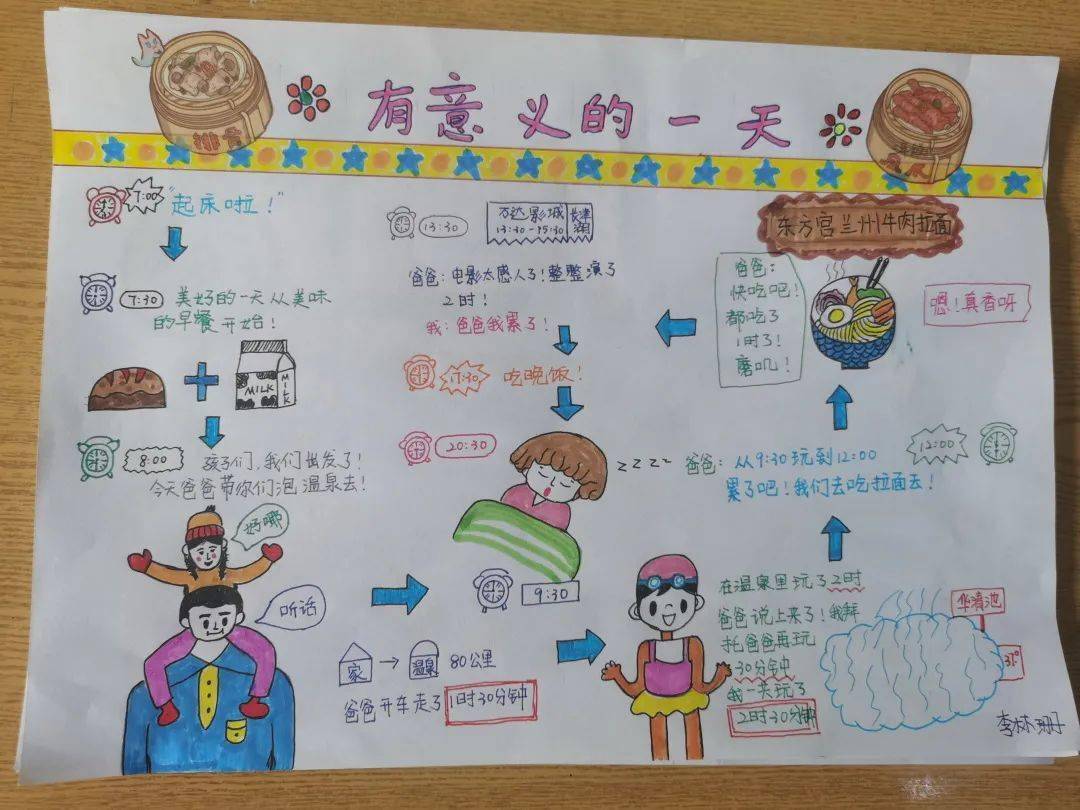 有意义的一天
排骨
7:00
"起床啦！"
7:30
美好的一天从美味
的早餐开始！
MILK
MILK
8:00
孩子们，我们出发了！
今天爸爸带你们泡温泉去！
好哪
听话
9:30
家
温泉
80公里
爸爸开车走了1时30分钟
在温泉里玩了2时
爸爸说上来了！我拜
托爸爸再玩
30分钟
我一共玩了
2时30分钟
华清池
31°
12:00
爸爸：从9:30玩到12:00
累了吧！我们去吃拉面去！
东方宫兰州牛肉拉面
爸爸：
快吃吧！
都吃了
1时了！
磨叽！
嗯！真香呀
13:30
万达影城
13:30-15:30
长津湖
爸爸：电影太感人了！整整演了
2时！
我：爸爸我累了！
17:30
吃晚饭！
20:30
zzzz
李林珊子